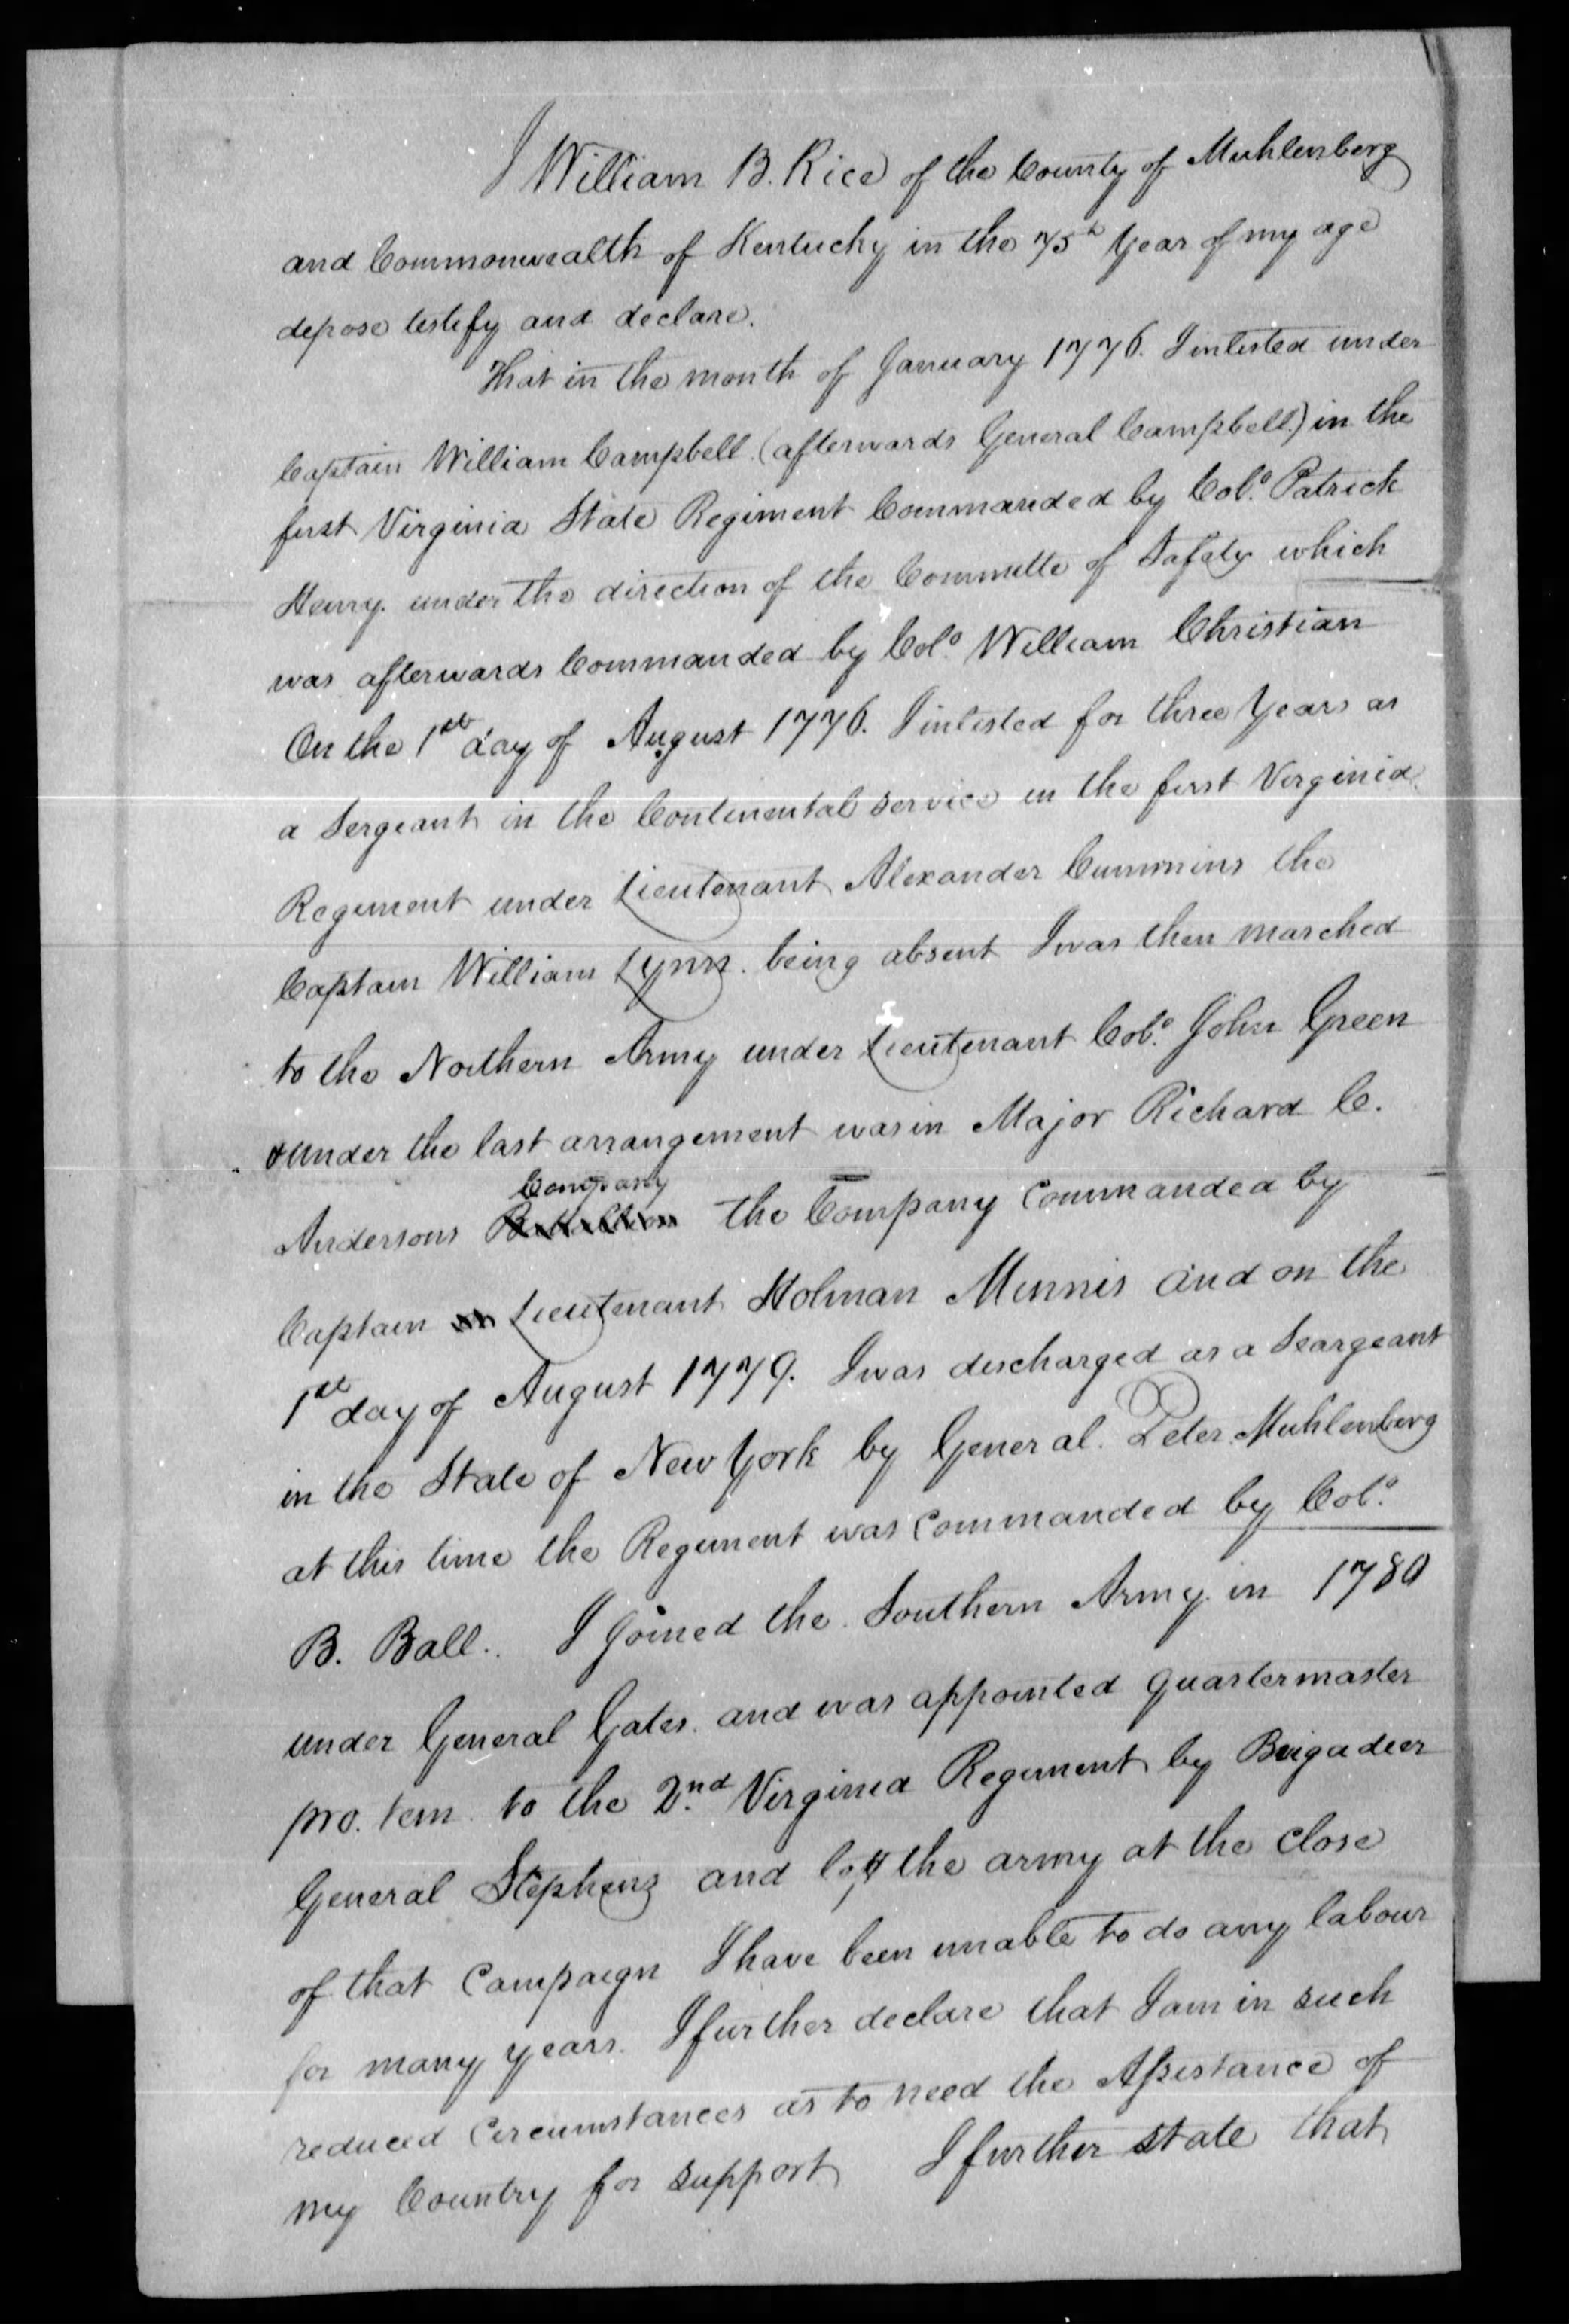 I William B. Rice of the County of Muhlenberg
and Commonwealth of Kentucky in the 75th Year of my age
depose testify and declare.
That in the month of January 1776. I inlisted under
Captain William Campbell (afterwards General Campbell) in the
first Virginia State Regiment Commanded by Colo. Patrick
Henry. under the direction of the Committe of Safety which
was afterwards Commanded by Colo. William Christian
On the 1st day of August 1776. I inlisted for three Years as
a Sergeant in the Continental service in the first Virginia
Regiment under Lieutenant Alexander Cummins the
Captain William Lynn. being absent I was then marched
to the Northern Army under Lieutenant Colo. John Green
& under the last arrangement was in Major Richard C.
Company
Andersons Battallion the Company Commanded by
Captain Lieutenant Holman Minnis and on the
1st day of August 1779. I was discharged as a Seargeant
in the State of New York by General. Peter Muhlenberg
at this time the Regiment was Commanded by Colo.
B. Ball. I joined the Southern Army in 1780
under General Gates. and was appointed quartermaster
pro. tem. to the 2nd Virginia Regiment by Brigadeer
General Stephens and left the army at the close
of that Campaign I have been unable to do any labour
for many years. I further declare that I am in such
reduced Circumstances as to need the Assistance of
my Country for support I further state that